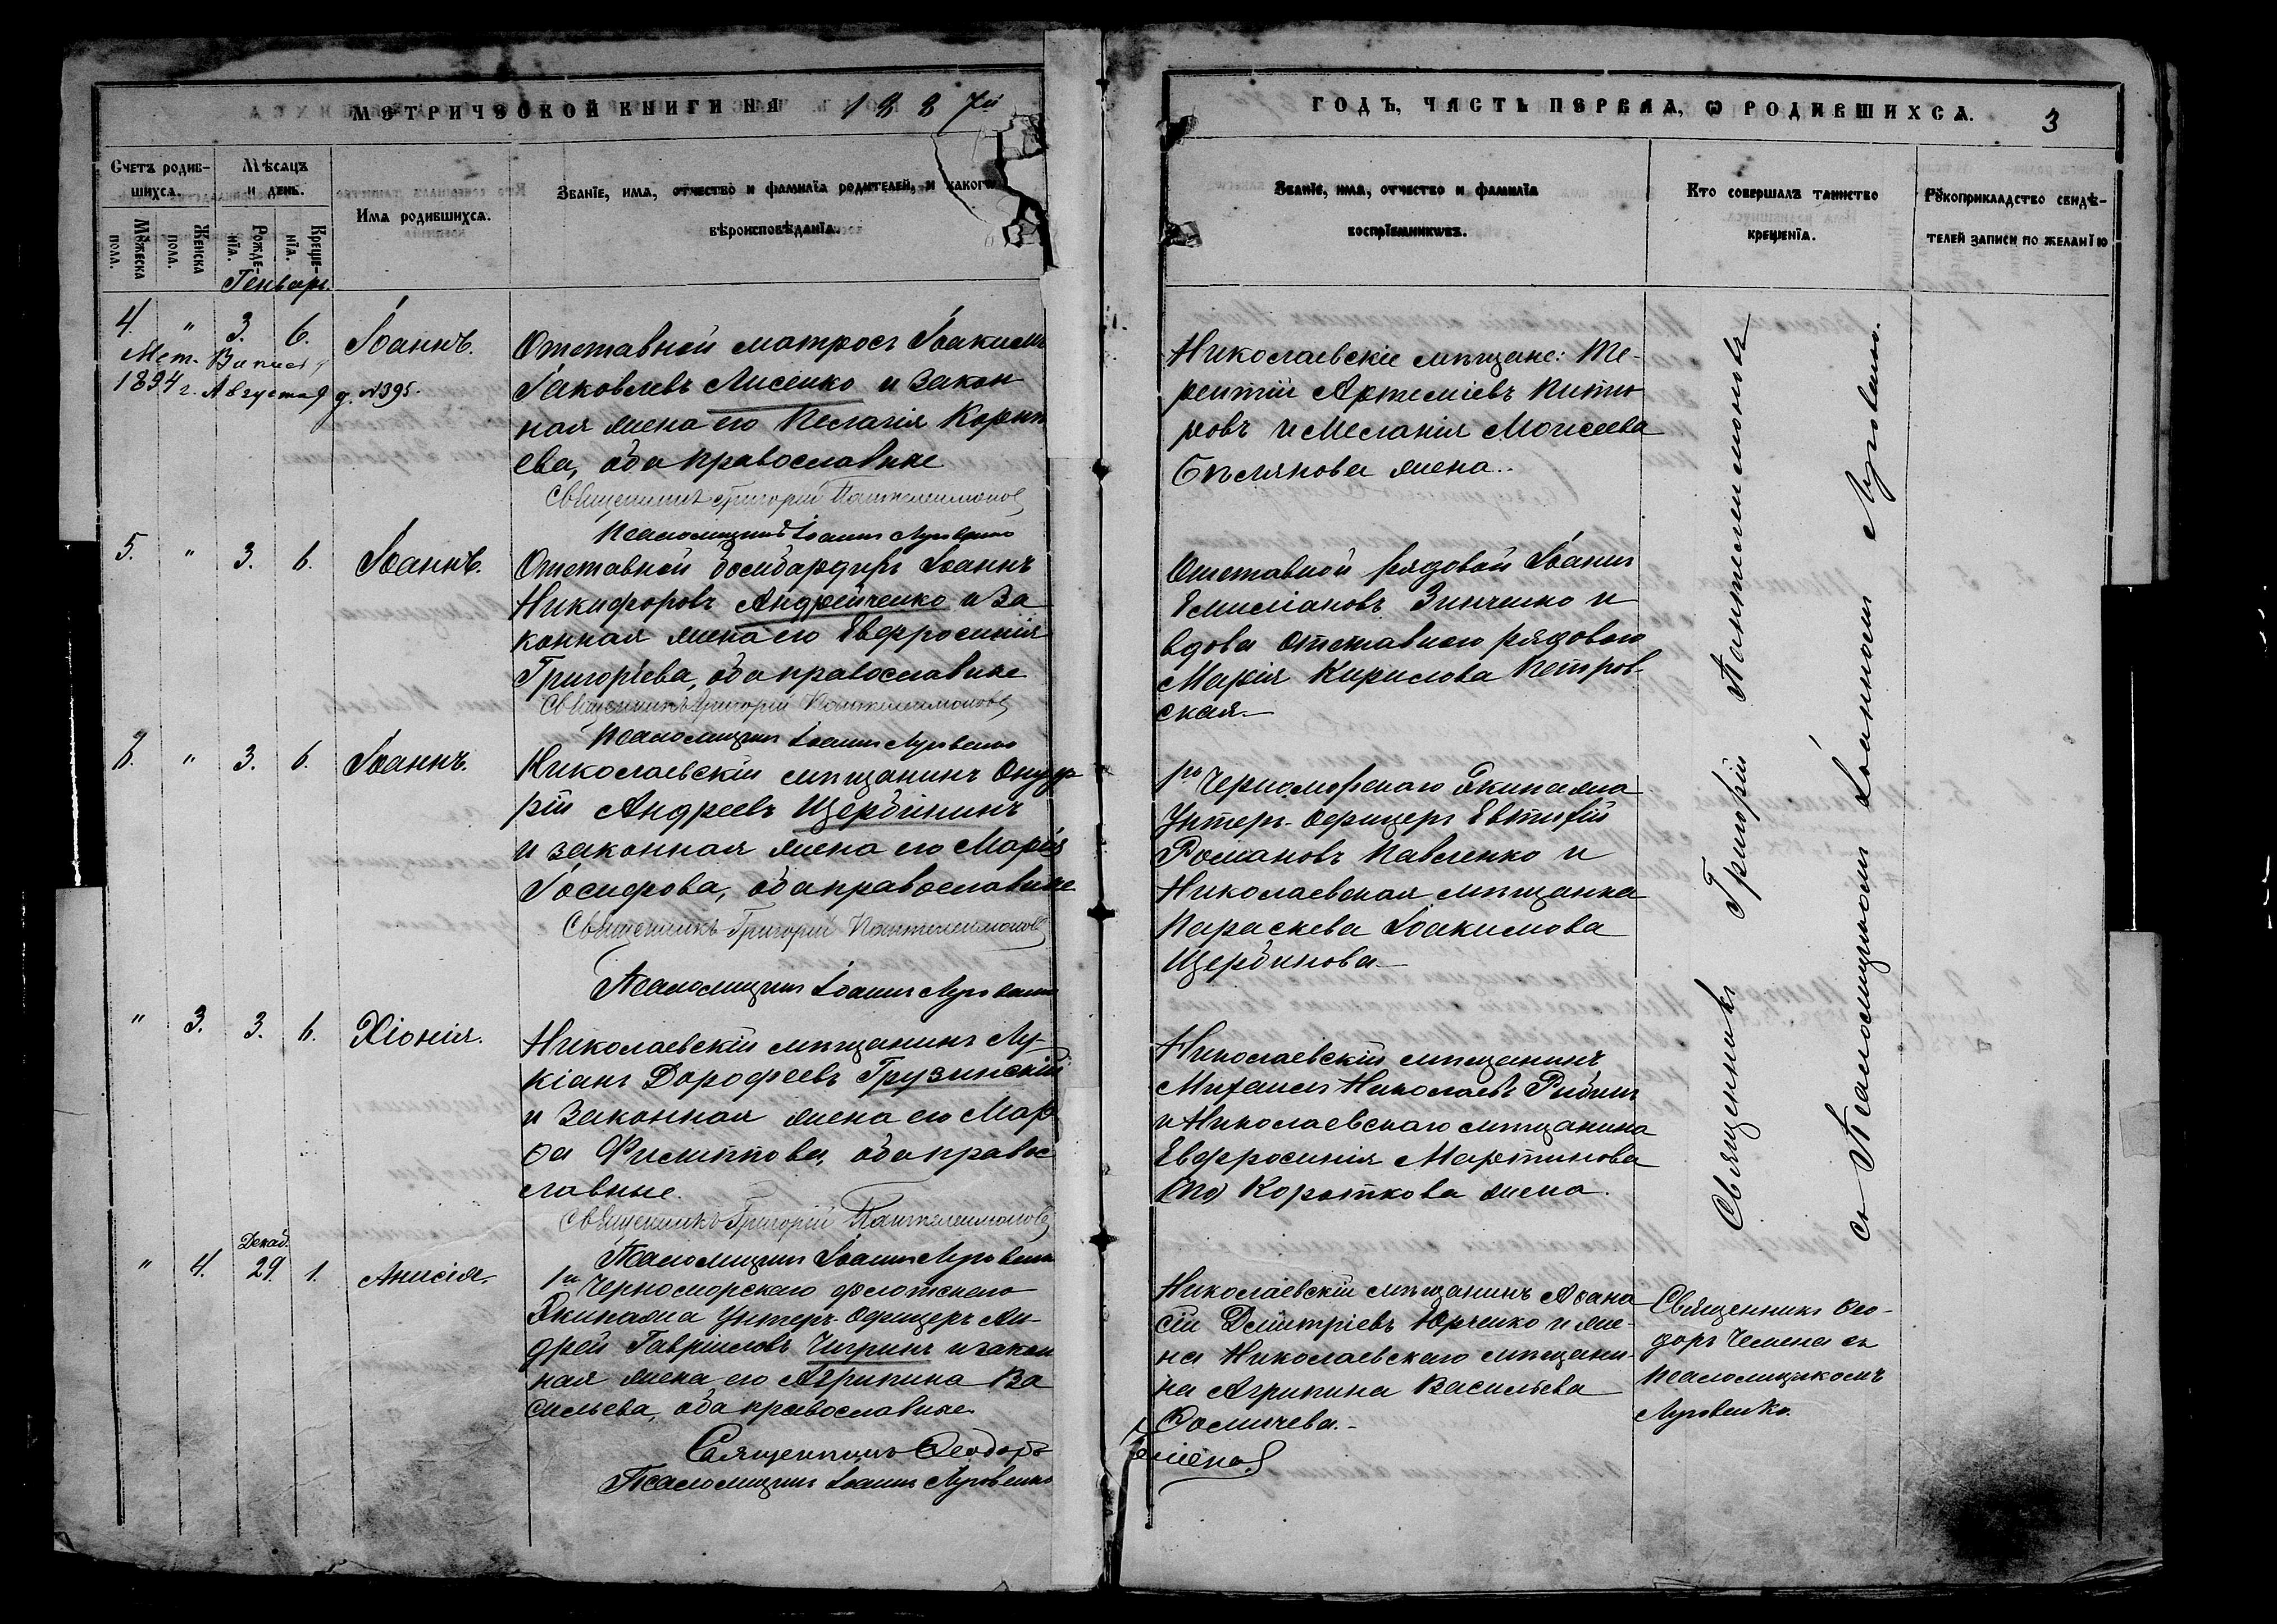 МЕТРИЧЕСКОЙ КНИГИ НА 1887й
ГОДЪ, ЧАСТЬ ПЕРВАЯ, Ѡ РОДИВШИХСѦ. 3
Счетъ родив-
шихсѧ.
Мѣсѧцъ
и день.
Мѫжеска
пола.
Женска
пола.
Рожде-
нїѧ.
Креще-
нїѧ.
Имѧ родившихсѧ.
Званїе, имѧ, отчество и фамилїѧ родителей, и какогѡ
вѣроисповѣданїѧ.
Званїе, имѧ, отчество и фамилїѧ
воспрїемникѡвъ.
Кто совершалъ таинство
крещенїѧ.
Рꙋкоприкладство свидѣ-
телей записи по желанїю
Генварь.
4. " 3. 6. Іоаннъ.
Мет.
1894 г. Августа 9 д. №395.
Отставной матросъ Іоакимъ
Іаковлевъ Лисенко и закон
ная жена его Пелагія Корни
ева, оба православные
Священникъ Григорій Пантелеимоновъ
Псаломщикъ Іоаннъ Луговенко
Николаевскіе мѣщане: Те-
рентій Артеміевъ
ровъ и Меланія Моисеева
Бѣлякова жена.
5. " 3. 6. Іоаннъ.
Отставной бомбардиръ Іоаннъ
Никифоровъ Андрейченко и за
конная жена его Евфросинія
Григорьева, оба православные
Священникъ Григорій Пантелеимоновъ
Псаломщикъ Іоаннъ Луговенко
Отставной рядовой Іоаннъ
Емиліановъ Зинченко и
вдова отставного рядового
Марія Кирилова Петров-
ская.
6. " 3. 6. Іоаннъ.
Николаевскій мѣщанинъ Онуф
рій Андреевъ Щербининъ
и законная жена его Марія
Іосифова, оба православные
Священникъ Григорій Пантелеимоновъ
Псаломщикъ Іоаннъ Луговенко
1го Черноморскаго Экипажа
Унтеръ-Офицеръ Евтихій
Романовъ Павленко и
Николаевская мѣщанка
Параскева Іоакимова
Щербинова
" 3. 3. 6. Хіонія.
Николаевскій мѣщанинъ Лу-
кіанъ Дорофеевъ Грузинскій
и законная жена его Мар
ѳа Филиппова, оба право
славные.
Священникъ Григорій Пантелеимоновъ
Псаломщикъ Іоаннъ Луговенко
Николаевскій мѣщанинъ
Михаилъ Николаевъ Рыбинъ
и Николаевскаго мѣщанина
Евфросинія Мартинова
Короткова жена.
Священникъ Григорій Пантелеимоновъ
съ Псаломщикомъ Іоанномъ Луговенко.
" 4. Декаб. 29. 1. Анисія.
1го Черноморскаго флотскаго
Экипажа Унтеръ-Офицеръ Ан-
дрей Гавріиловъ Чигринъ и закон
ная жена его Агрипина Ва
сильева, оба православные.
Священникъ Ѳеодоръ Чемена
Псаломщикъ Іоаннъ Луговенко
Николаевскій мѣщанинъ Аѳана
сій Димитріевъ Юрченко и же-
на Николаевскаго мѣщани-
на Агрипина Васильева
Ѳомичева.
Священникъ Ѳео-
доръ Чемена съ
Псаломщикомъ
Луговенко.